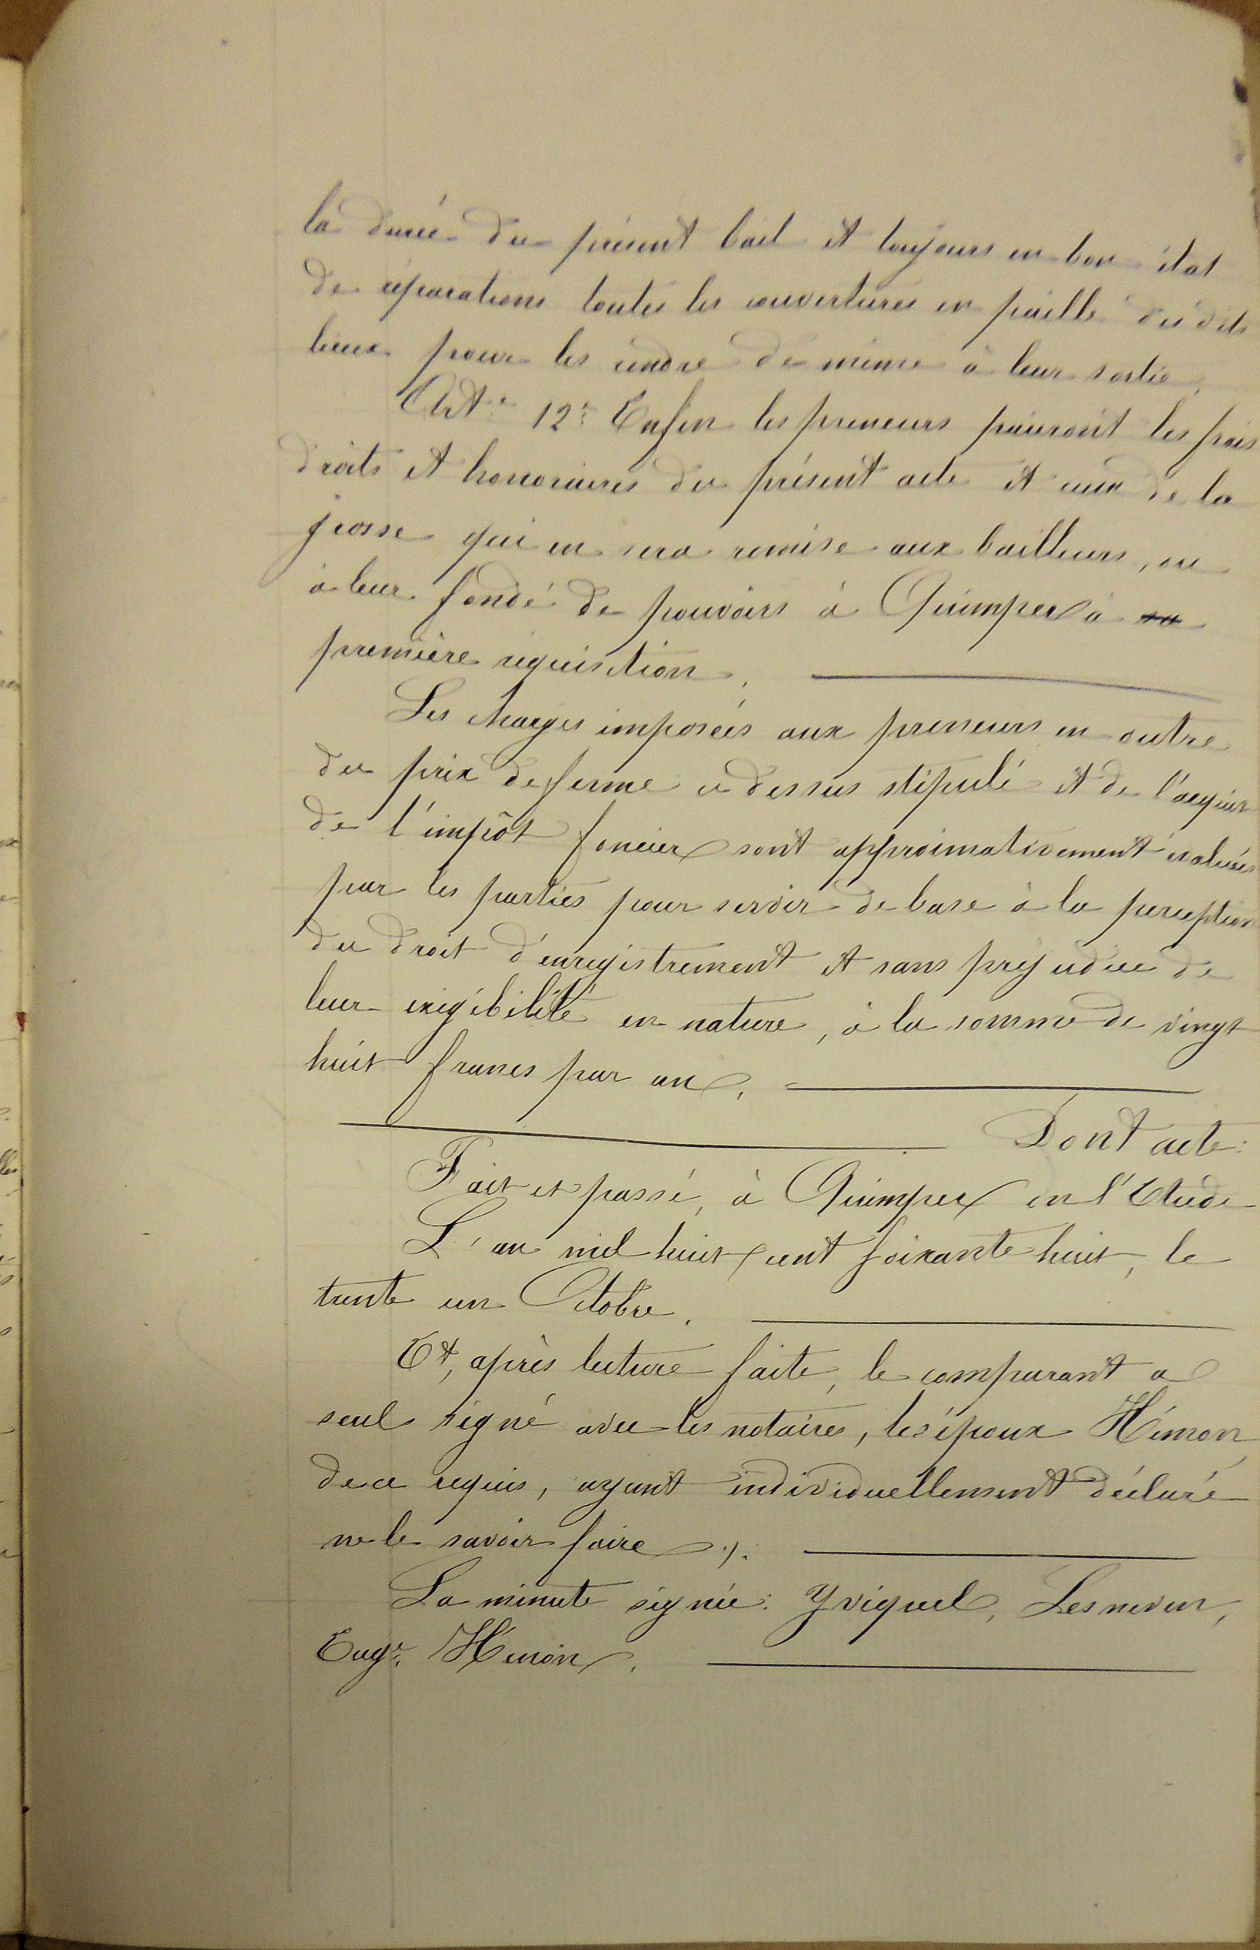 la durée du présent bail et toujours en bon état
de réparations toutes les couvertures en paille des dits
lieux pour les rendre de même à leur sortie.
Arte. 12e. Enfin les preneurs paieront les frais
droits et honoraires du présent acte et ceux de la
grosse qui en sera remise aux bailleurs, ou
à leur fondé de pouvoirs à Quimper à sa
première réquisition.
Les charges imposées aux preneurs en outre
du prix de ferme ci dessus stipulé et de l'acquit
de l'impôt foncier sont approimativement évaluées
par les parties pour servir de base à la perception
du droit d'enregistrement et sans préjudice de
leur exigibilité en nature, à la somme de vingt
huit francs par an.
Dont acte:
Fait et passé, à Quimper en l'Etude
L'an mil huit cent soixante huit, le
trente un Octobre.
Et, après lecture faite, le comparant a
seul signé avec les notaires, les époux Hémon,
de ce requis, ayant individuellement déclaré
ne le savoir faire ./.
La minute signée: Yviquel, Lesneven,
Euge. Hémon.